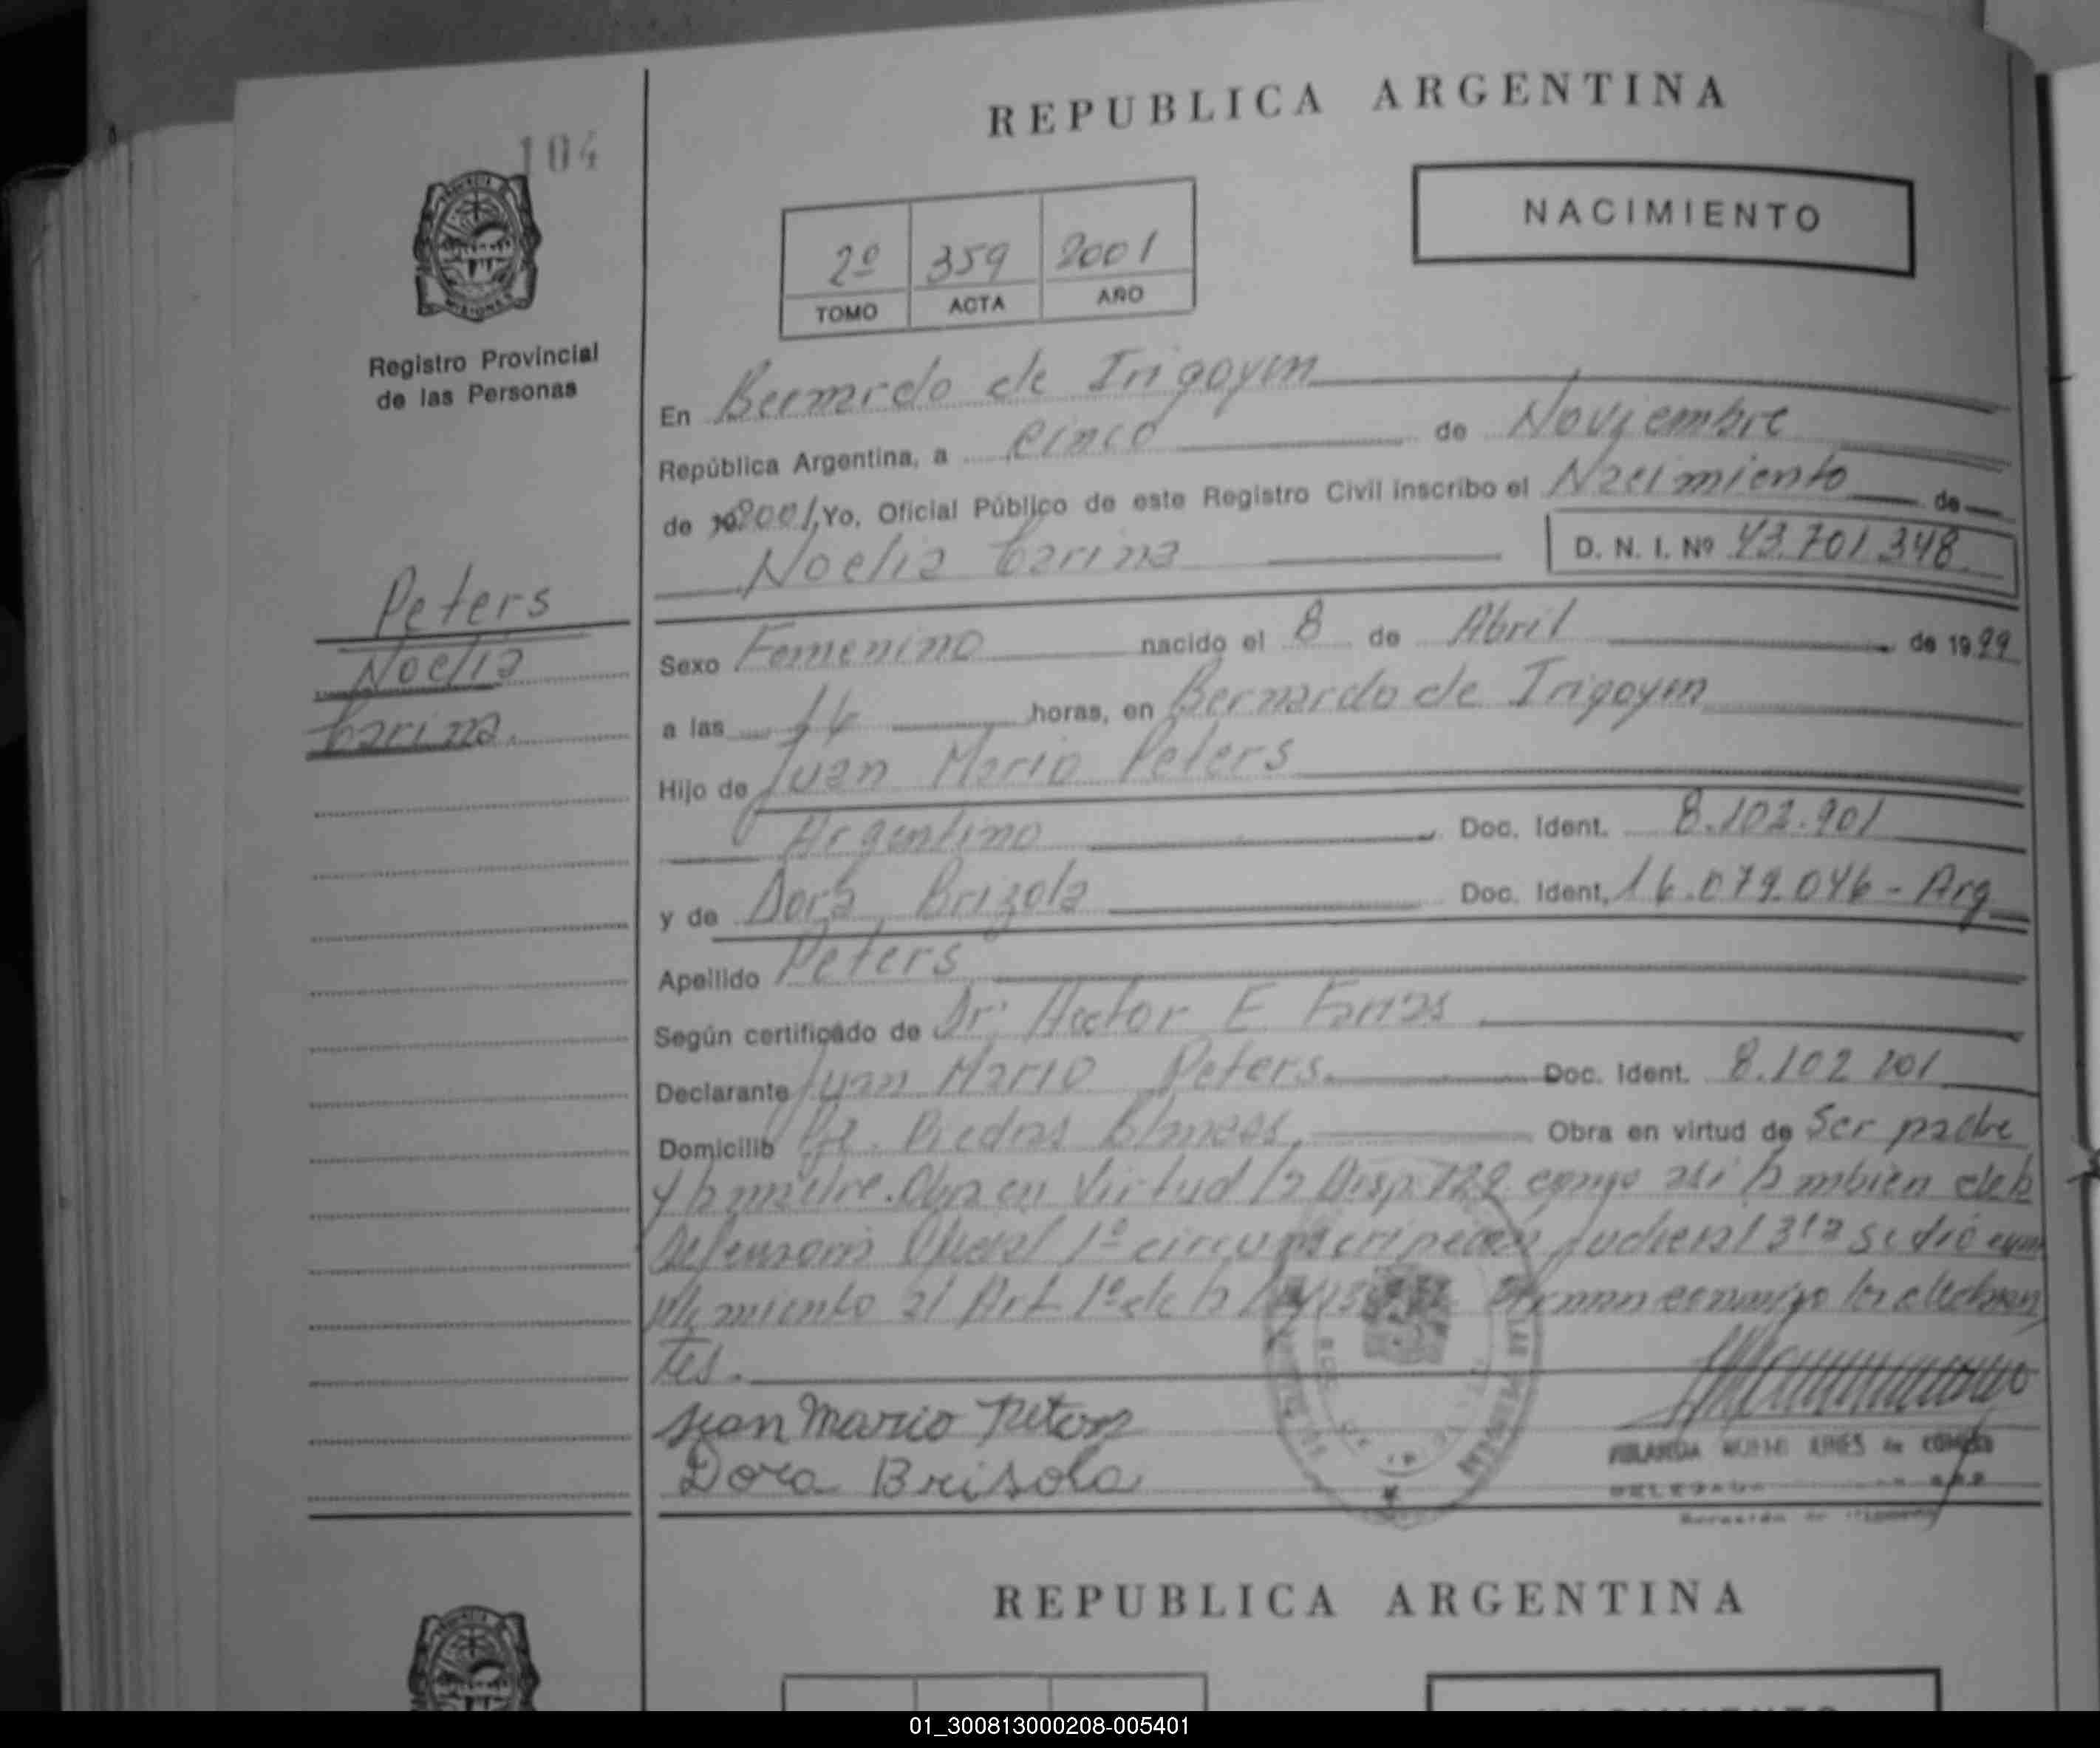 104
REPUBLICA ARGENTINA
NACIMIENTO
2º 359 2001
TOMO ACTA AÑO
Registro Provincial
de las Personas
En Bernardo de Irigoyen
República Argentina, a cinco de Noviembre
de 192001, Yo, Oficial Público de este Registro Civil inscribo el Nacimiento de
Noelia Carina D. N. I. Nº 43.701.348
Peters
Noelia
Carina.
Sexo Femenino nacido el 8 de Abril de 1999
a las 16 horas, en Bernardo de Irigoyen
Hijo de Juan Mario Peters
Argentino Doc. Ident. 8.102.901
y de Dora Brizola Doc. Ident. 16.079.046 - Arg
Apellido Peters
Según certificado de Dr. Hector E. Farias
Declarante Juan Mario Peters. Doc. Ident. 8.102 201
Domicilio Piedras Blancas, Obra en virtud de Ser padre
y la madre. Obra en Virtud la Disp. 122 como asi tambien de la
Defensoria Oficial 1º circunscripcion Judicial 3ra se dió cum
plimiento al Art. 1º de la Ley Firman conmigo los declaran
tes.
Juan Mario Peters
Dora Brisola
de
DELEGADA
Bernardo de Irigoyen
REPUBLICA ARGENTINA
01_300813000208-005401